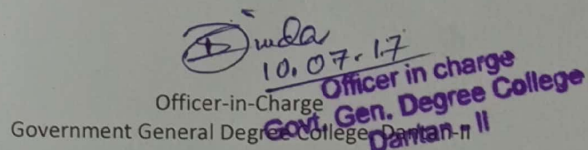 10.07.17
Officer in charge
Govt. Gen. Degree College
Dantan-II
Officer-in-Charge
Government General Degree College, Dantan-II